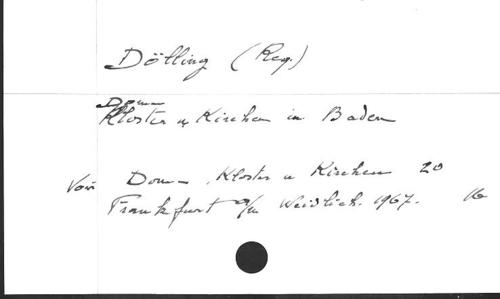 Dölling (Reg.)
Dom
Kloster u Kirchen in Baden
Von Dom-, Kloster u Kirchen 20
Frankfurt a/m Weidlich. 1967. 16